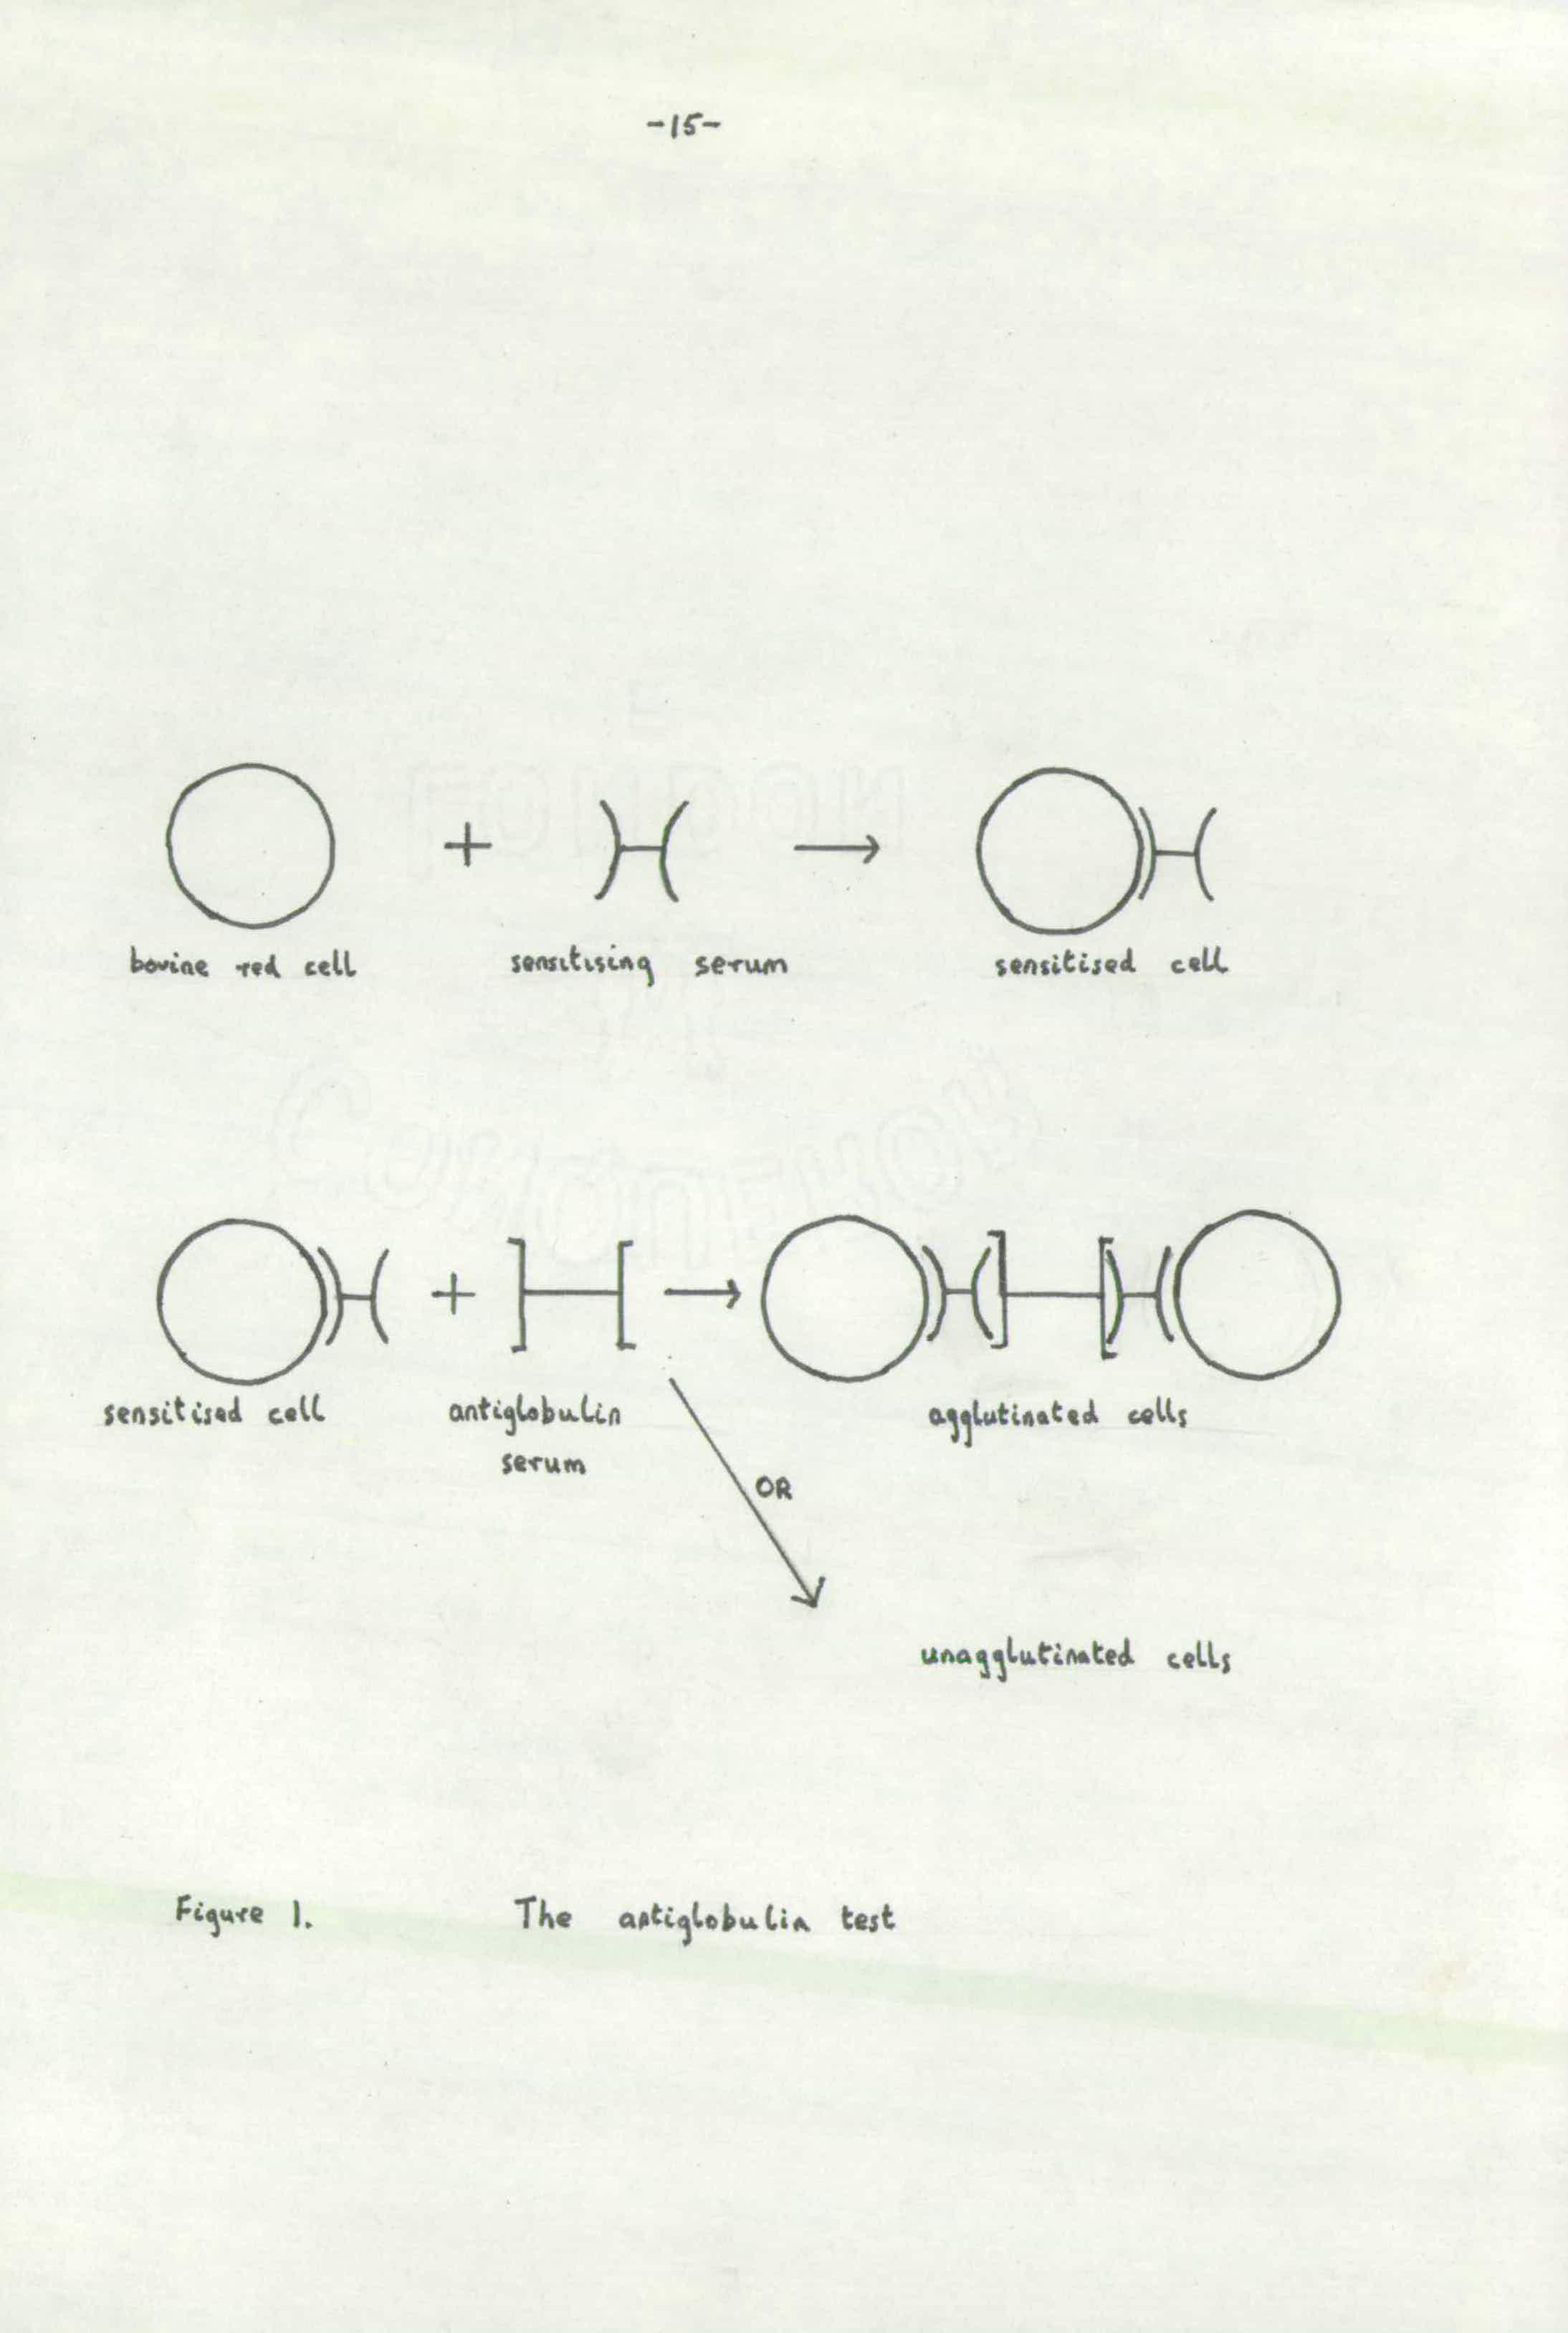 -15-
+ →
bovine red cell sensitising serum sensitised cell
+ →
sensitised cell antiglobulin agglutinated cells
serum
OR
unagglutinated cells
Figure 1. The antiglobulin test